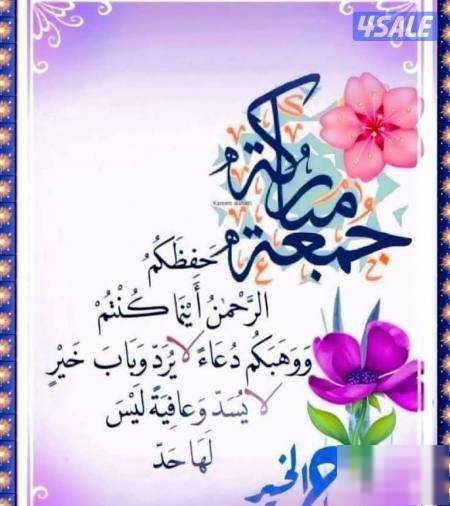 4SALE
جمعة مباركة
حَفِظَكُمُ
الرَّحْمٰنُ أَيْنَمَا كُنْتُمْ
وَوَهَبَكُم دُعَاءً لا يُرَدّ وَبَابَ خَيْرٍ
لا يُسَدّ وَعافِيَةً لَيْسَ
لَهَا حَدّ
الخير